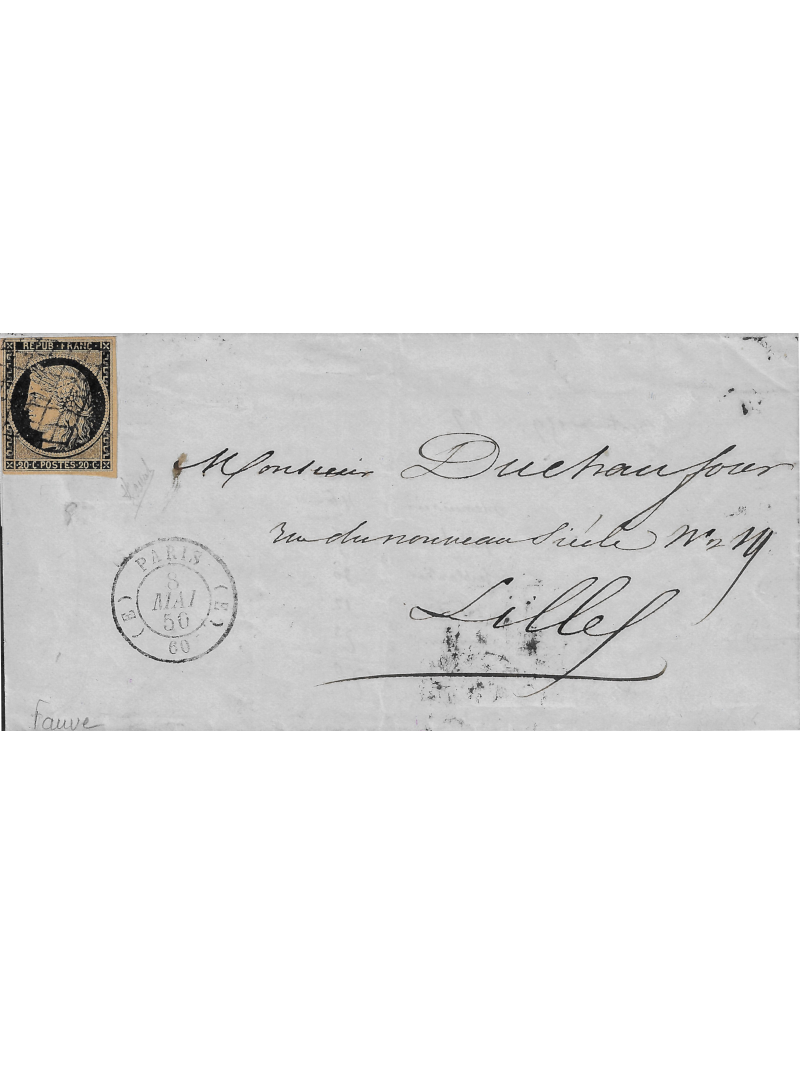 REPUB. FRANC.
20.C. POSTES. 20.C
Monsieur Duchaufour
rue du nouveau Siècle No 19
Lille
PARIS
(E) (E)
8
MAI
50
60
Fauve